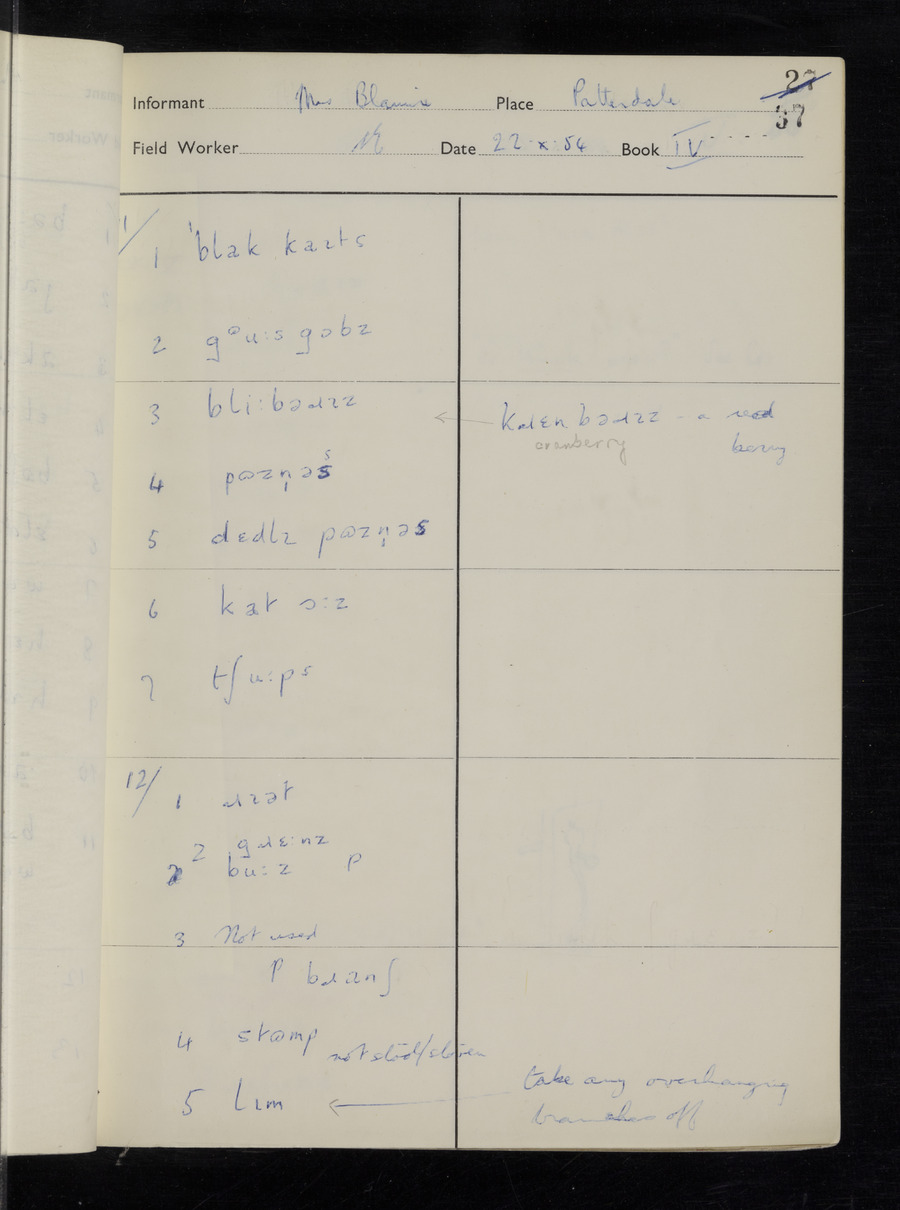 27
37
Informant Mrs Blamire Place Patterdale
Field Worker Date 22.x.54 Book IV
11/
1 ˈblak kaɪts
2 gᵊu:s gɔbz
3 bli:bəɹɪz ← kɹɛn bəɹɪz - a red
cranberry berry
4 pɷɪzn̩əs
s
5 dɛdlɪ pɷɪzn̩əs
6 kat ɔ:z
7 tʃu:ps
12/
1 ɹɪət
2 gɹɛ:nz
bu:z P
3 Not used
P bɹanʃ
4 stɷmp
5 lɪm ← take any overhanging
branches off